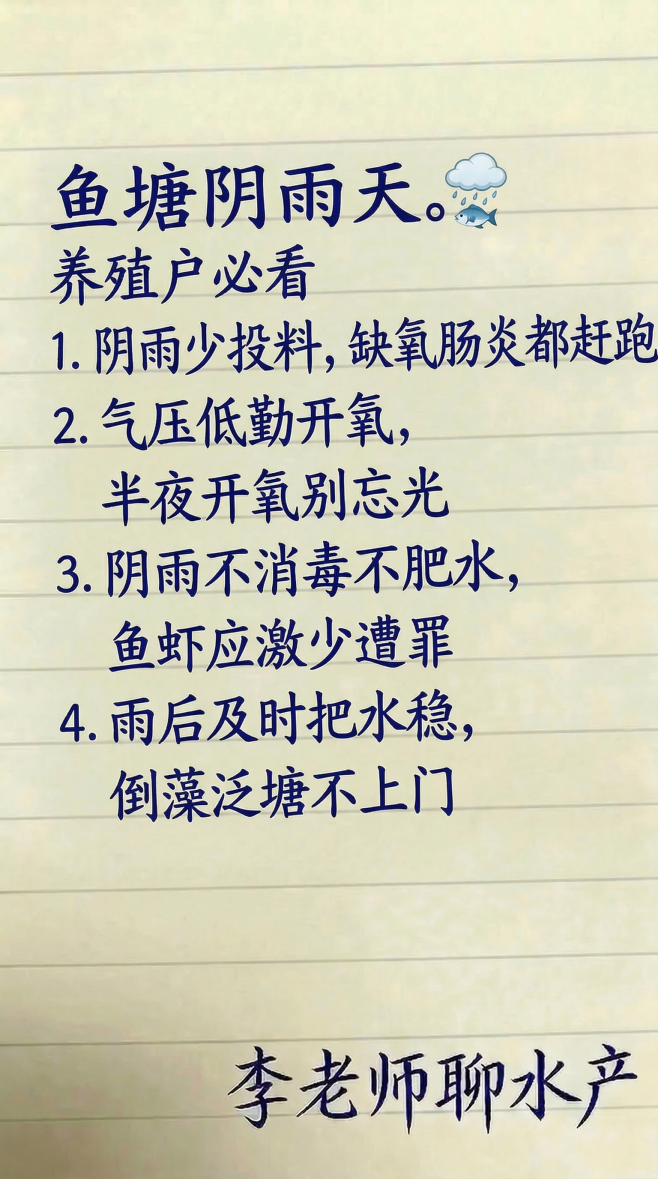 鱼塘阴雨天。🌧️🐟
养殖户必看
1. 阴雨少投料,缺氧肠炎都赶跑
2. 气压低勤开氧,
半夜开氧别忘光
3. 阴雨不消毒不肥水,
鱼虾应激少遭罪
4. 雨后及时把水稳,
倒藻泛塘不上门
李老师聊水产